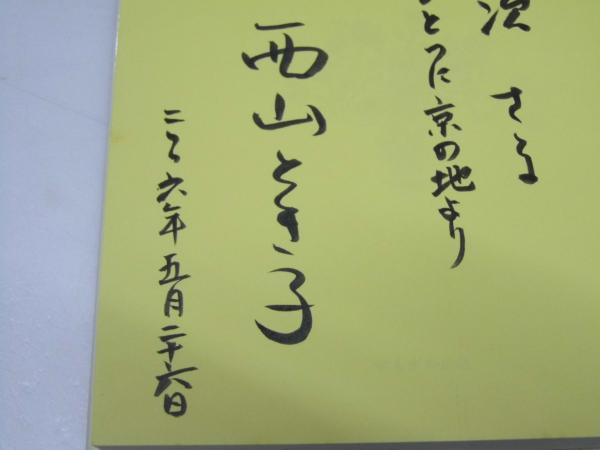 次 さる
とつに京の地より
西山とき子
二〇〇六年五月二十六日